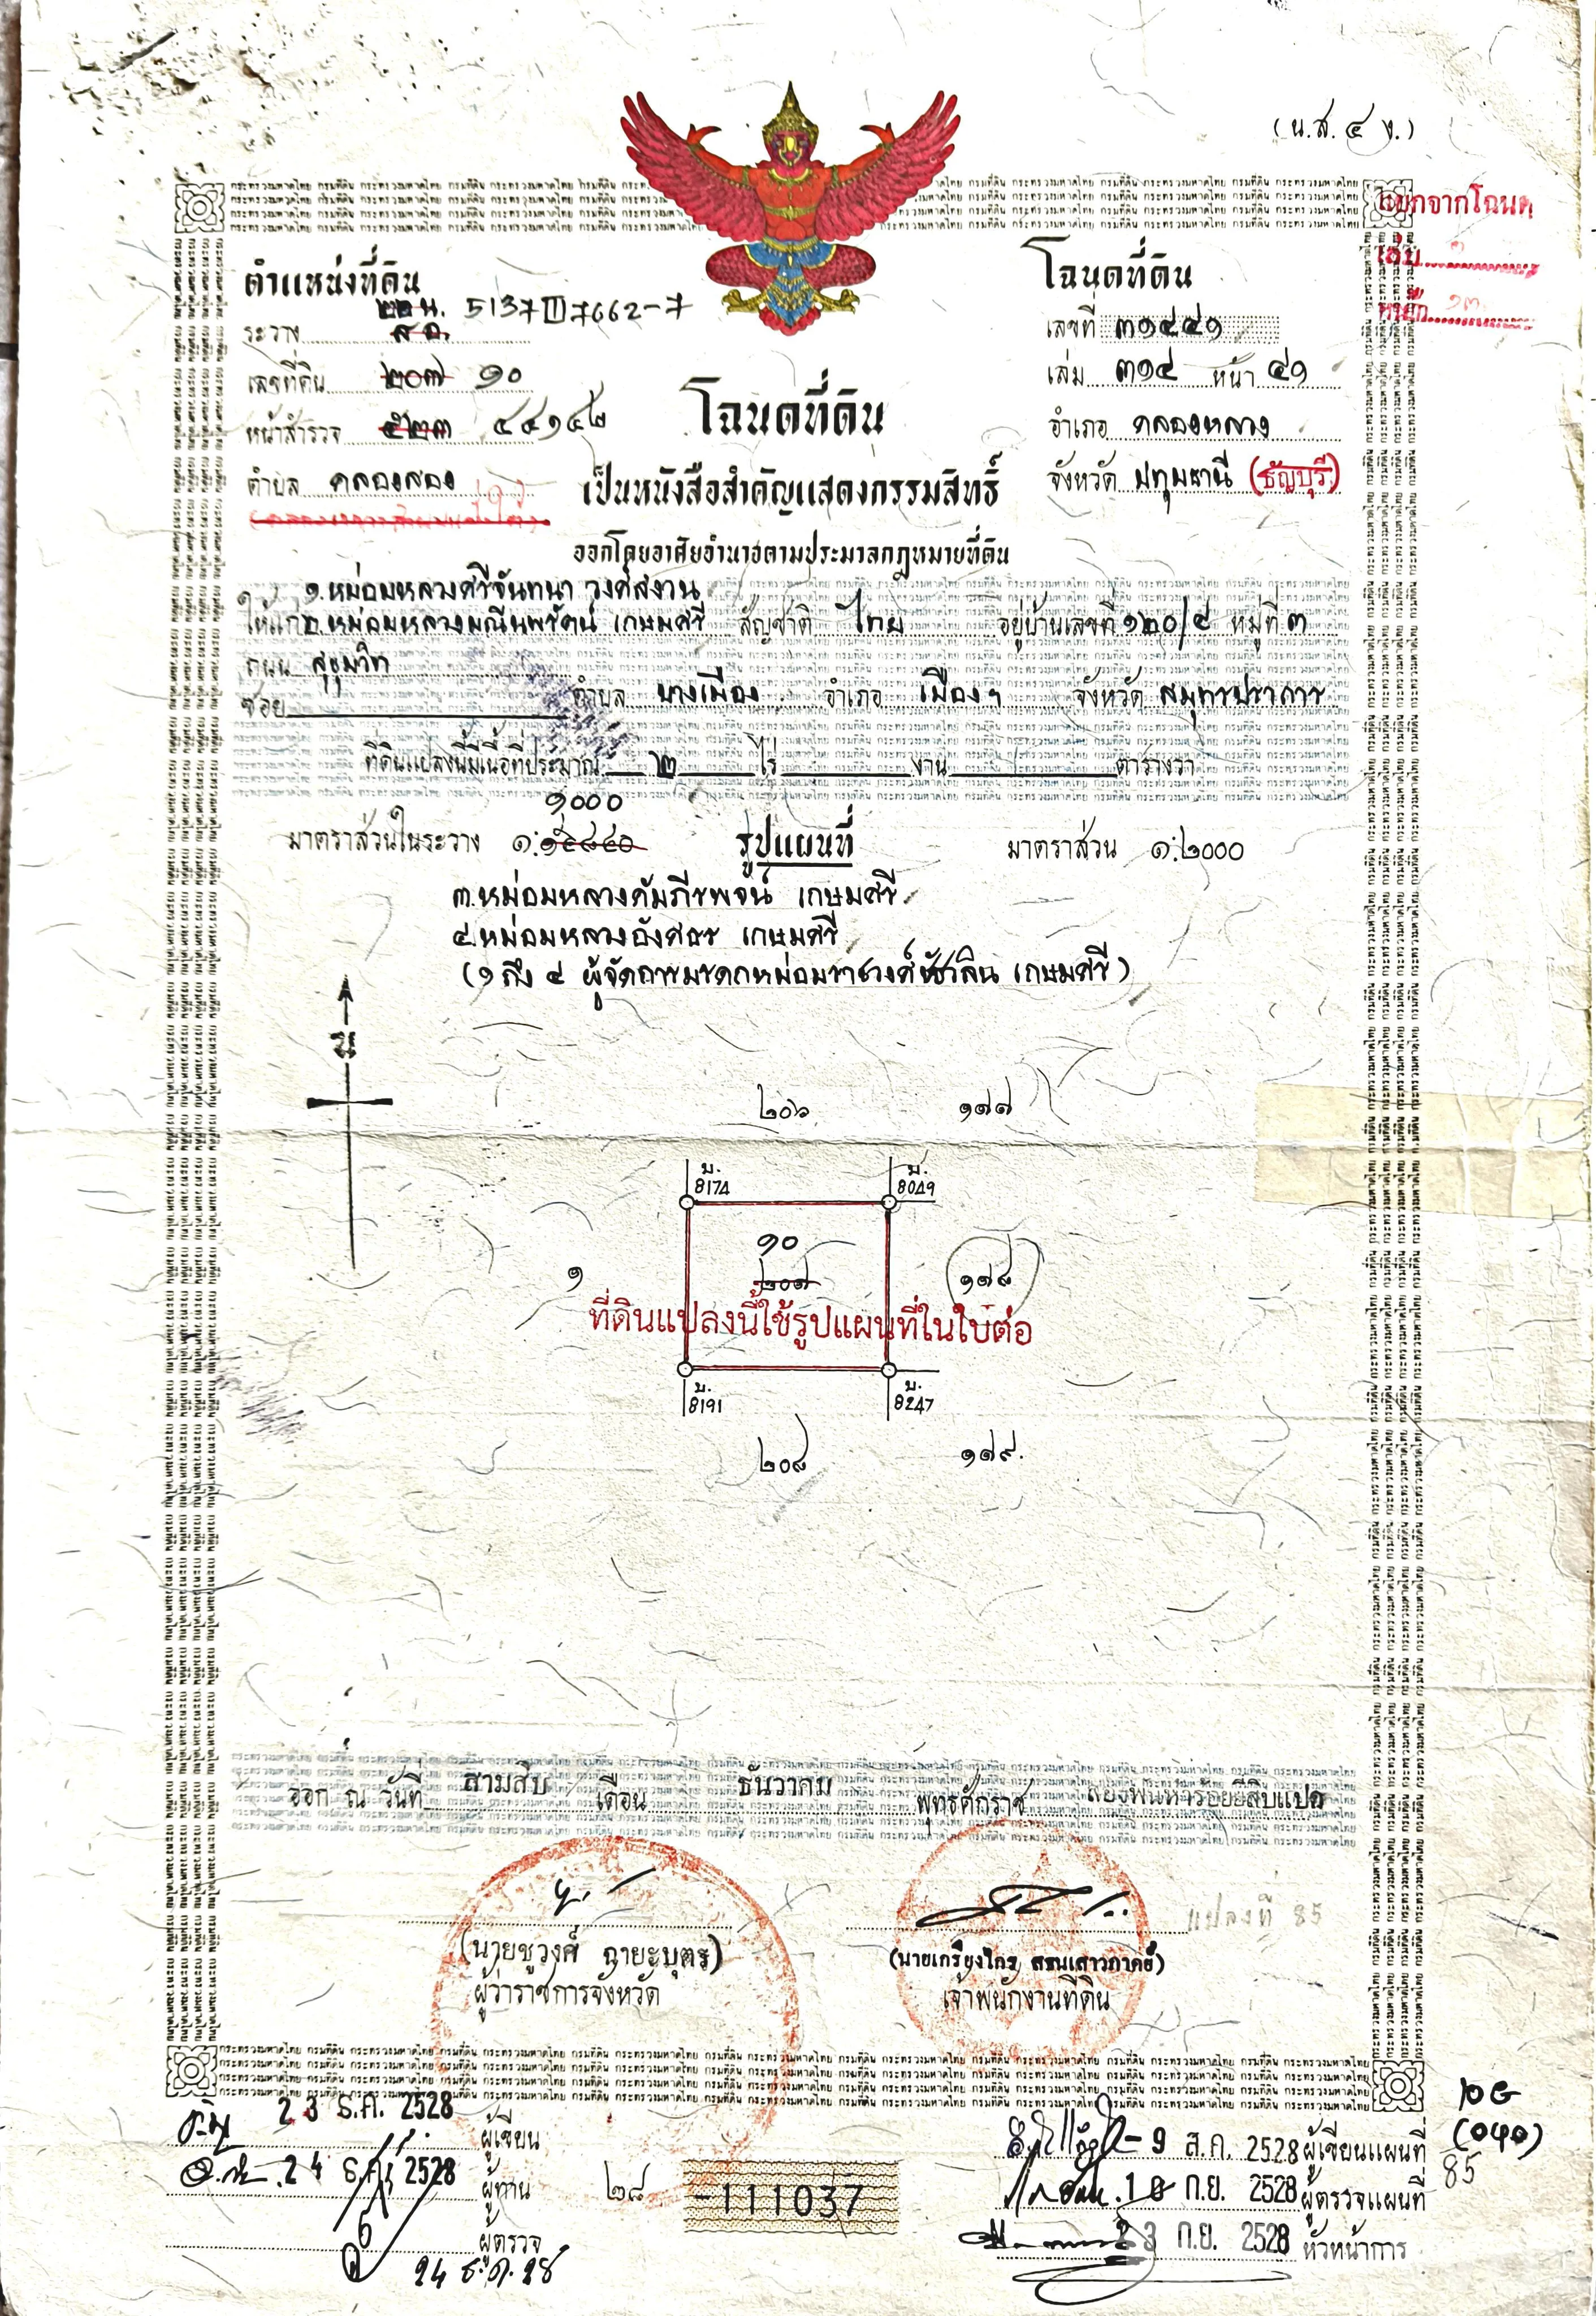 (น.ส. ๔ ง.)
ตำแหน่งที่ดิน
ระวาง ๒๒ น. ๕ อ. 5137 III 7662-7
เลขที่ดิน ๒๐๗ ๑๐
หน้าสำรวจ ๕๒๓ ๔๔๑๔๒
ตำบล คลองสอง
โฉนดที่ดิน
เลขที่ ๓๑๔๔๑
เล่ม ๓๑๔ หน้า ๔๑
อำเภอ คลองหลวง
จังหวัด ปทุมธานี (ธัญบุรี)
โฉนดที่ดิน
เป็นหนังสือสำคัญแสดงกรรมสิทธิ์
ออกโดยอาศัยอำนาจตามประมวลกฎหมายที่ดิน
๑.หม่อมหลวงศรีจันทนา วงศ์สงวน
ให้แก่ ๒.หม่อมหลวงมณีนพรัตน์ เกษมศรี สัญชาติ ไทย อยู่บ้านเลขที่ ๑๒๐/๔ หมู่ที่ ๓
ถนน สุขุมวิท
ซอย ตำบล บางเมือง อำเภอ เมืองฯ จังหวัด สมุทรปราการ
ที่ดินแปลงนี้มีเนื้อที่ประมาณ ๒ ไร่ งาน ตารางวา
๑๐๐๐
มาตราส่วนในระวาง ๑:๑๔๘๔๐ รูปแผนที่ มาตราส่วน ๑:๒๐๐๐
๓.หม่อมหลวงคัมภีรพจน์ เกษมศรี
๔.หม่อมหลวงอังศธร เกษมศรี
(๑ ถึง ๔ ผู้จัดการมรดกหม่อมราชวงศ์ชัชวลิน เกษมศรี)
น
๒๐๖ ๑๗๗
บ. 8174 บ. 8049
๑๐
๑ ๒๐๗ ๑๗๘
ที่ดินแปลงนี้ใช้รูปแผนที่ในใบต่อ
บ. 8191 บ. 8247
๒๐๘ ๑๗๙
ออก ณ วันที่ สามสิบ เดือน ธันวาคม พุทธศักราช สองพันห้าร้อยยี่สิบแปด
แปลงที่ 85
(นายชูวงศ์ ฉายะบุตร)
ผู้ว่าราชการจังหวัด
(นายเกรียงไกร สรนเสาวภาคย์)
เจ้าพนักงานที่ดิน
23 ธ.ค. 2528 ผู้เขียน
24 ธ.ค. 2528 ผู้ทาน
ผู้ตรวจ
24 ธ.ค. 28
๒๘
-111037
- 9 ส.ค. 2528 ผู้เขียนแผนที่
10 ก.ย. 2528 ผู้ตรวจแผนที่
23 ก.ย. 2528 หัวหน้าการ
85